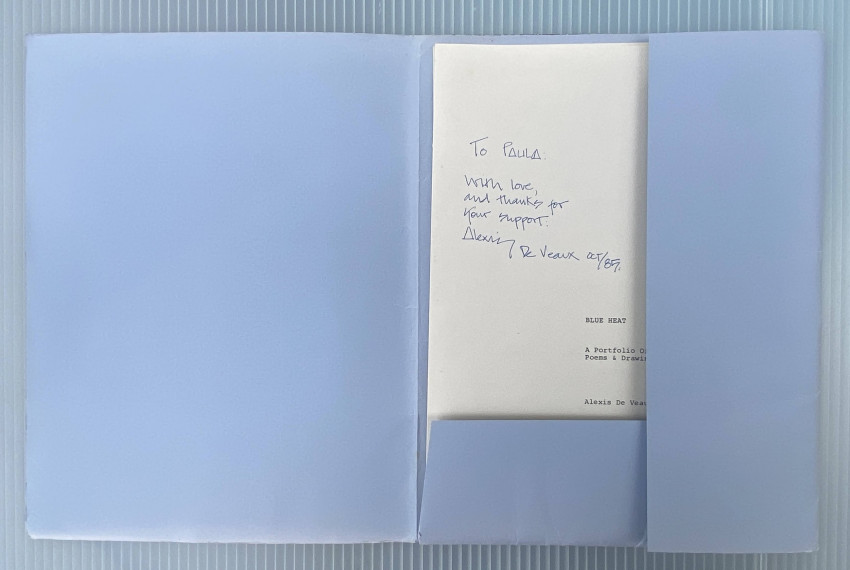 To PAULA.
With love,
and thanks for
your support.
Alexis De Veaux Oct/85.
BLUE HEAT
A Portfolio O
Poems & Drawi
Alexis De Veau